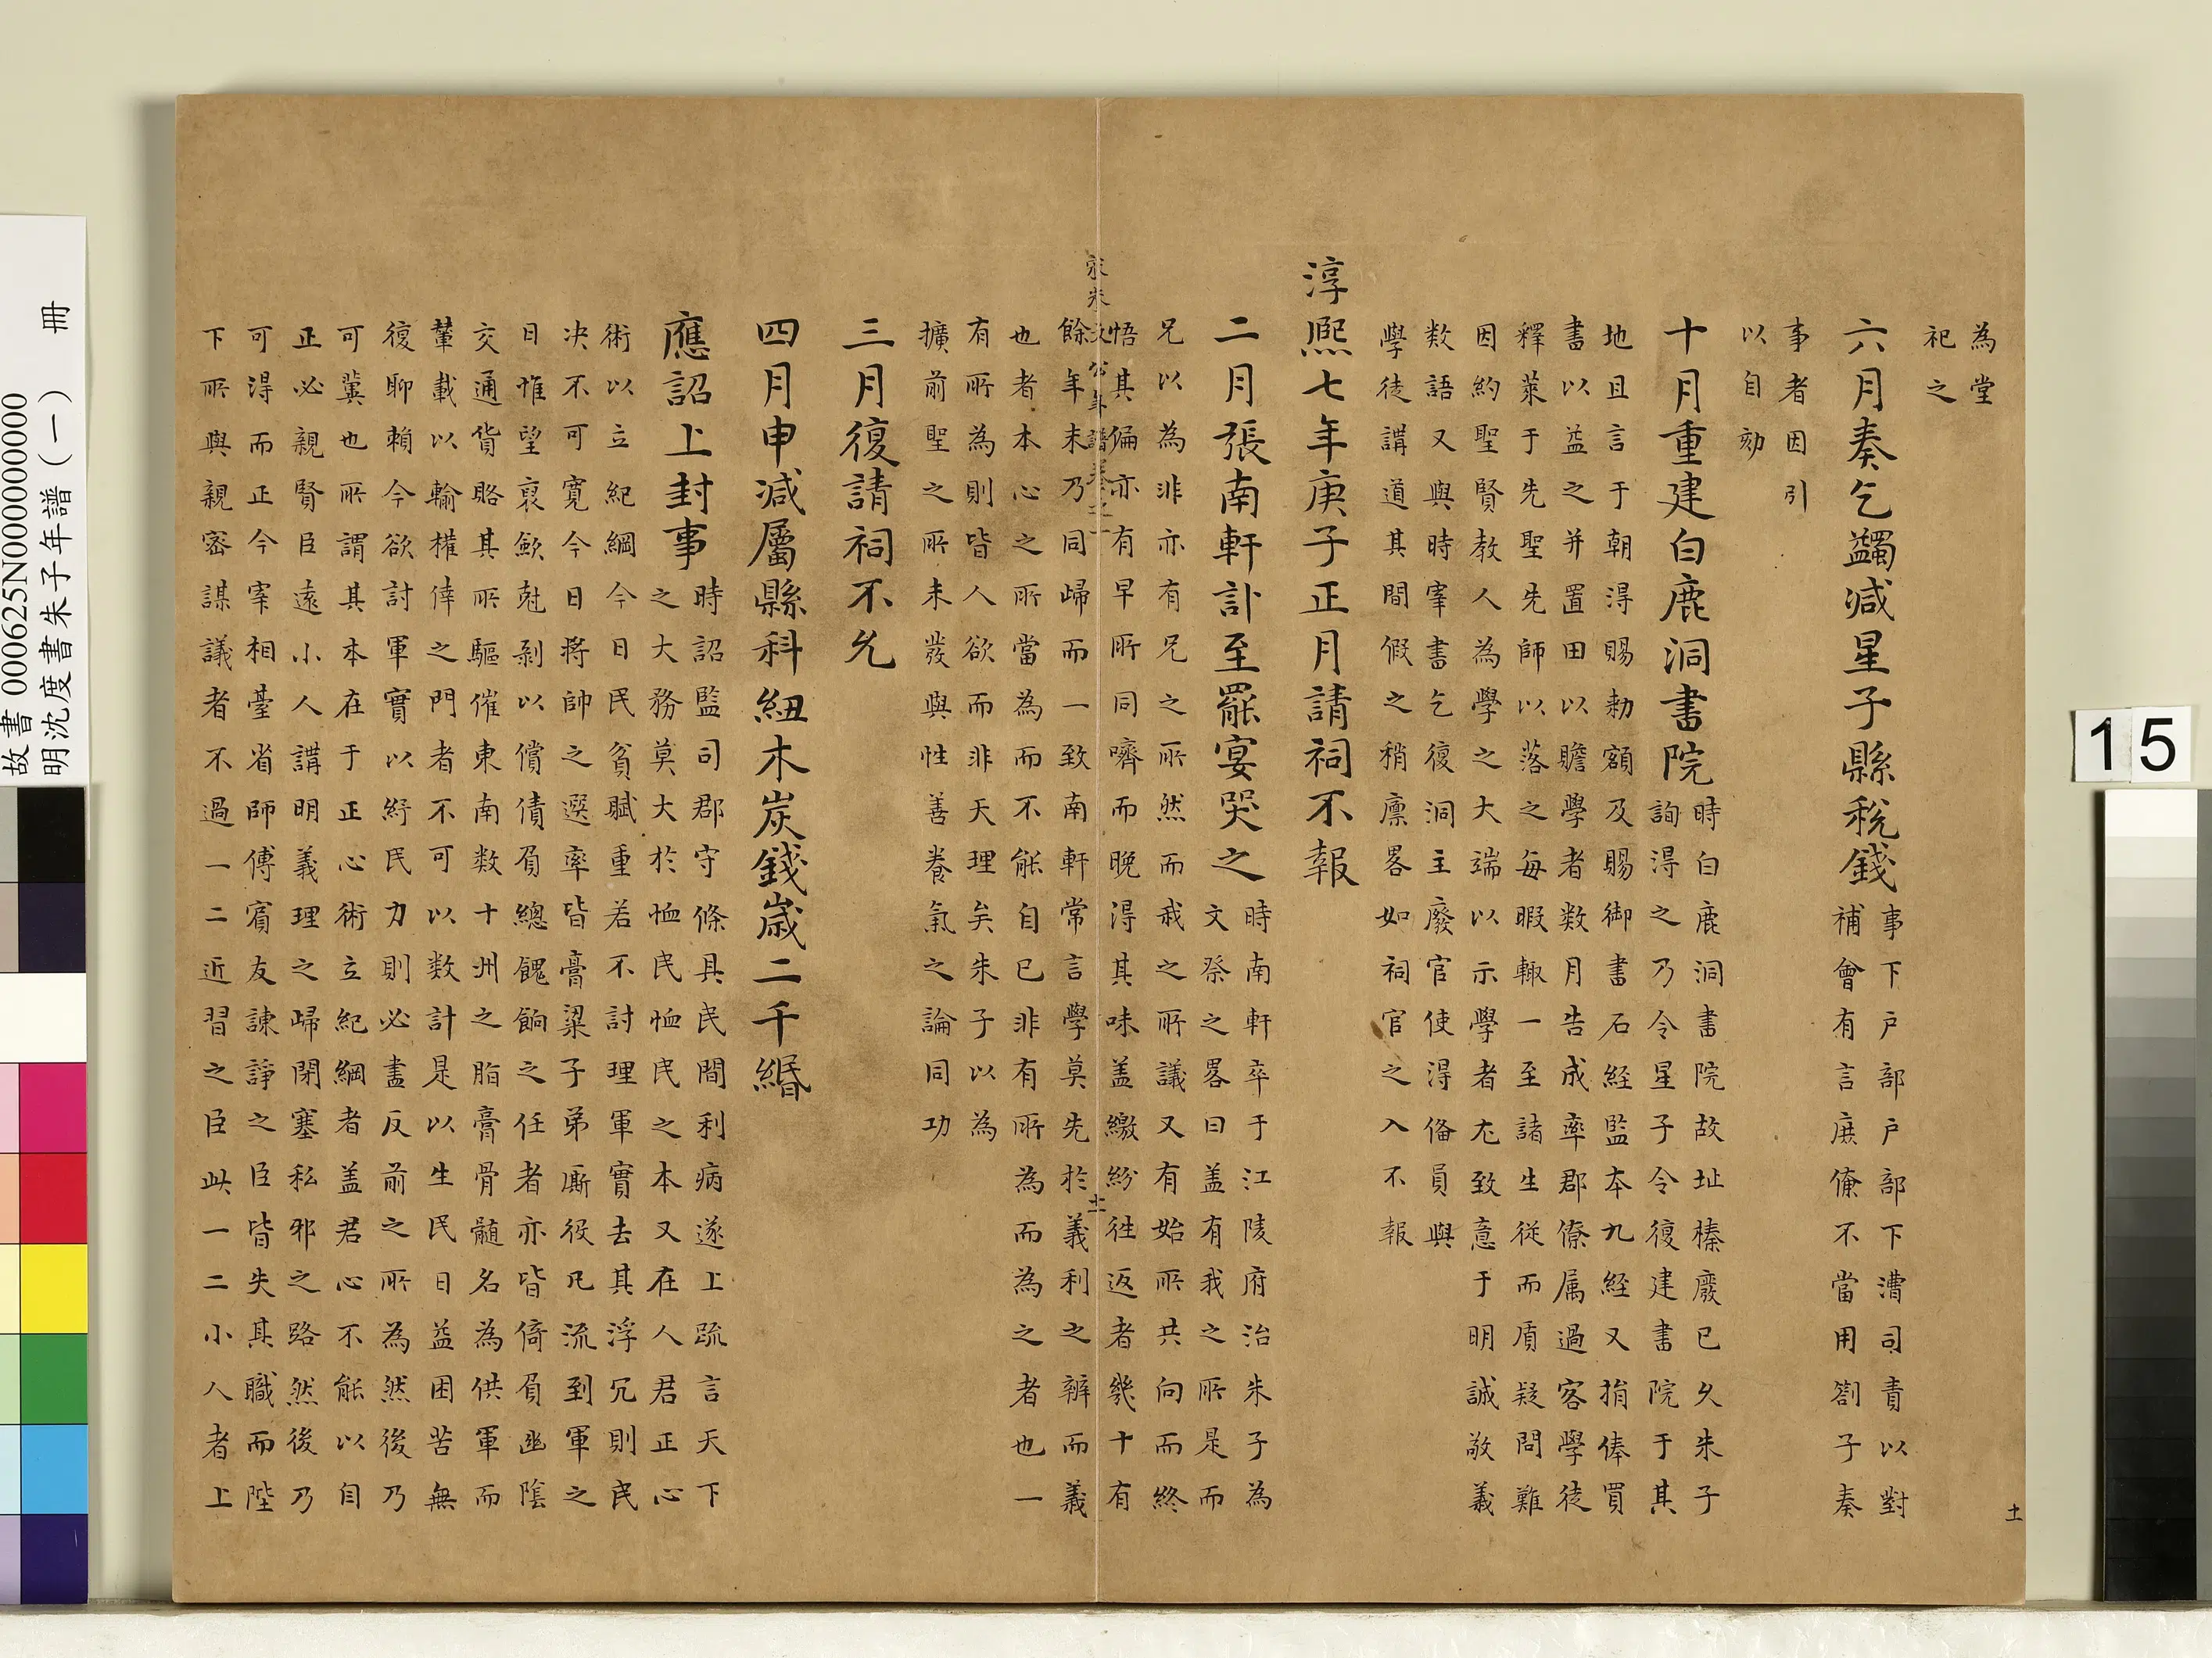 為堂
祀之
六月奏乞蠲減星子縣稅錢
事下户部户部下漕司責以對
補會有言庶僚不當用劄子奏
事者因引
以自劾
十月重建白鹿洞書院
時白鹿洞書院故址榛廢已久朱子
詢得之乃令星子令復建書院于其
地且言于朝得賜勅額及賜御書石經監本九經又捐俸買
書以益之并置田以贍學者数月告成率郡僚属過客學徒
釋菜于先聖先師以落之每暇輙一至諸生從而質疑問難
因約聖賢教人為學之大端以示學者尤致意于明誠敬義
数語又與時宰書乞復洞主廢官使得俻員與
學徒講道其間假之稍廪畧如祠官之入不報
淳熈七年庚子正月請祠不報
二月張南軒訃至罷宴哭之
時南軒卒于江陵府治朱子為
文祭之畧曰盖有我之所是而
兄以為非亦有兄之所然而我之所議又有始所共向而終
悟其偏亦有早所同嚌而晚得其味盖繳紛徃返者幾十有
餘年末乃同歸而一致南軒常言學莫先於義利之辨而義
也者本心之所當為而不能自已非有所為而為之者也一
有所為則皆人欲而非天理矣朱子以為
擴前聖之所未發與性善養氣之論同功
三月復請祠不允
四月申减屬縣科紐木炭錢歲二千緡
應詔上封事
時詔監司郡守條具民間利病遂上疏言天下
之大務莫大於恤民恤民之本又在人君正心
術以立紀綱今日民貧賦重若不討理軍實去其浮冗則民
决不可寛今日將帥之選率皆膏粱子弟厮役凡流到軍之
日惟望裒歛尅剥以償債負總餽餉之任者亦皆倚負幽陰
交通貨賂其所驅催東南数十洲之脂膏骨髓名為供軍而
輦載以輸權倖之門者不可以数計是以生民日益困苦無
復聊頼今欲討軍實以紓民力則必盡反前之所為然後乃
可冀也所謂其本在于正心術立紀綱者盖君心不能以自
正必親賢臣遠小人講明義理之歸閉塞私邪之路然後乃
可得而正今宰相臺省師傅賓友諫諍之臣皆失其職而陛
下所與親宻謀議者不過一二近習之臣此一二小人者上
土
15
故書 000625N000000000 冊
明沈度書朱子年譜(一)